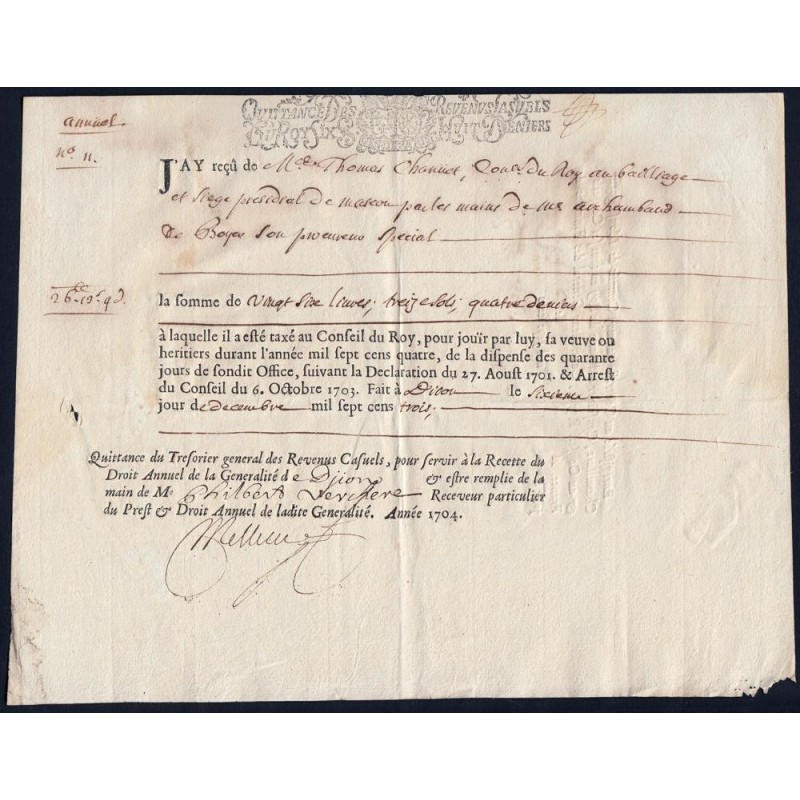 QUITTANCE DES REVENUS CASUELS
DU ROY SIX HUIT DENIERS
annuel
no. 11.
J'AY reçû de Me Thomas Channot, Conser du Roy au bailliage
et Siege presidial de mascon par les mains de me archambaud
de Boyer son procureur special
26lt 13s 4d.
la somme de vingt six liures, treize sols, quatre deniers
à laquelle il a esté taxé au Conseil du Roy, pour joüir par luy, sa veuve ou
heritiers durant l'année mil sept cens quatre, de la dispense des quarante
jours de sondit Office, suivant la Declaration du 27. Aoust 1701. & Arrest
du Conseil du 6. Octobre 1703. Fait à Dijon le sixieme
jour de decembre mil sept cens trois.
Quittance du Tresorier general des Revenus Casuels, pour servir à la Recette du
Droit Annuel de la Generalité de Dijon & estre remplie de la
main de Me Philibert Verchere Receveur particulier
du Prest & Droit Annuel de ladite Generalité. Année 1704.